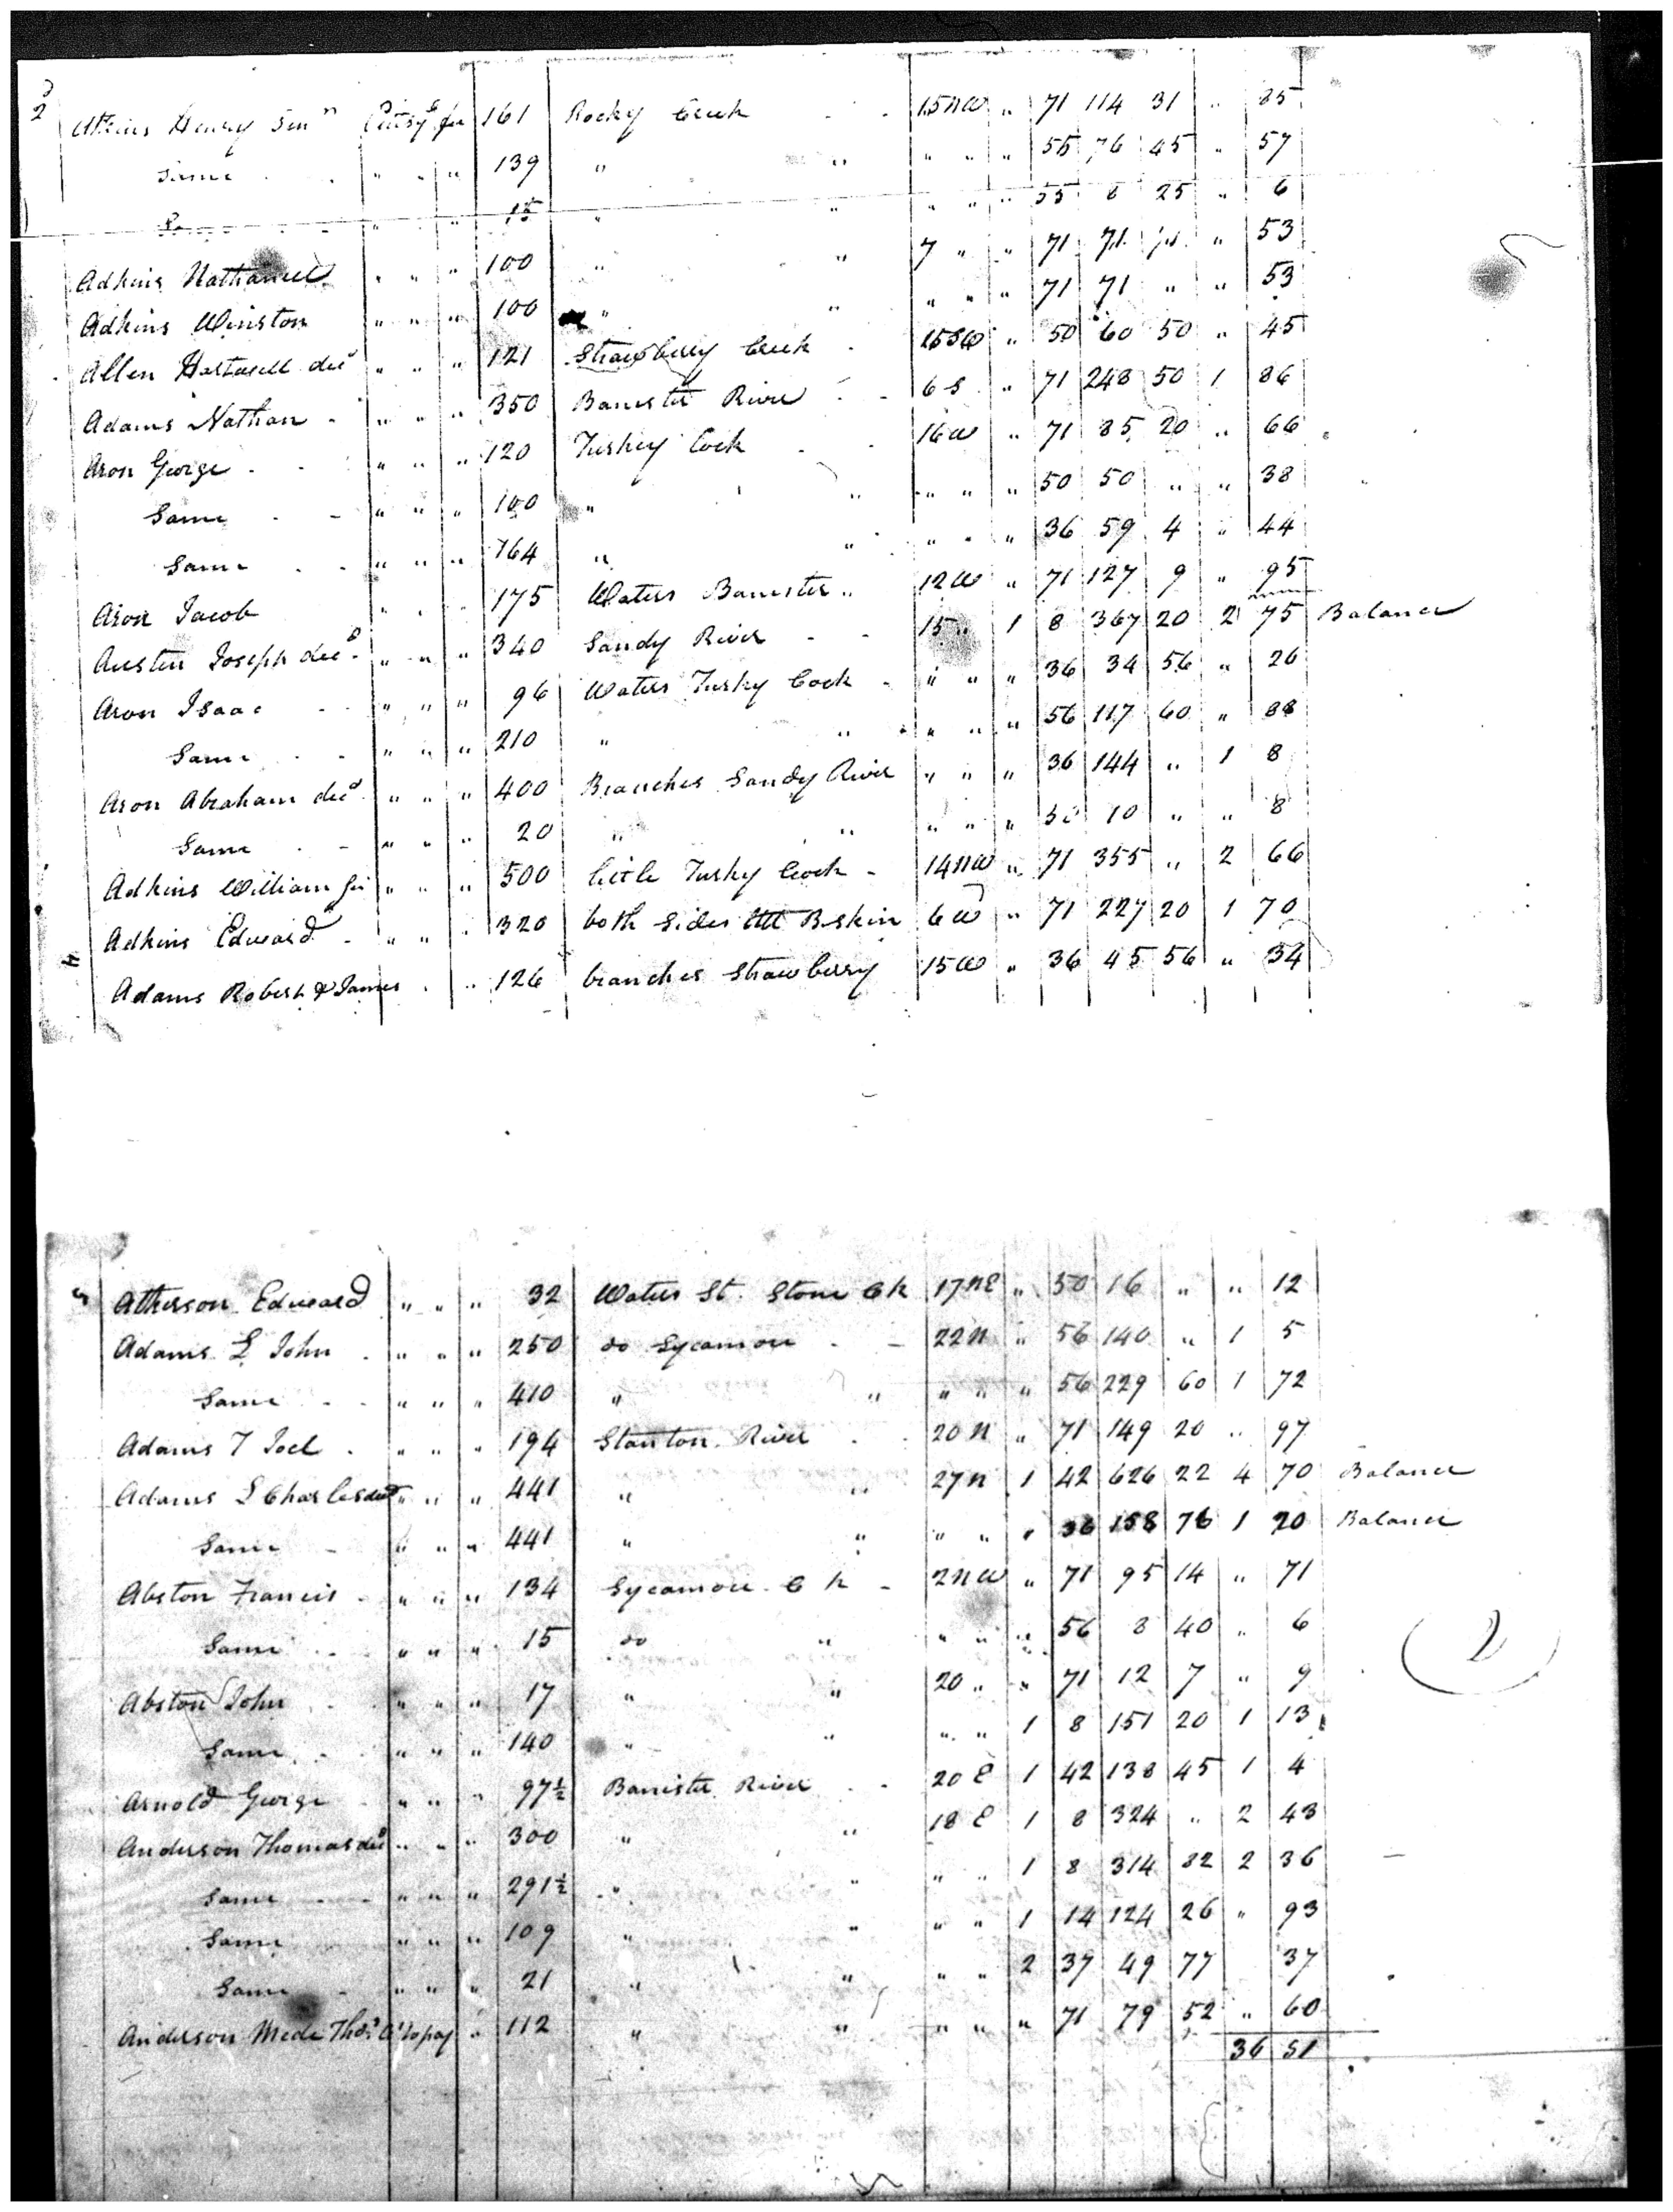 2 Atkins Henry Senr Pittsy fee 161 Rocky Creek 15 NW " 71 114 31 " 85
Same " " " 139 " " " " " 55 76 45 " 57
Same " " " 15 " " " " " 55 8 25 " 6
Adkins Nathaniel " " " 100 " " 7 " " 71 71 " " 53
Adkins Winston " " " 100 " " " " " 71 71 " " 53
Allen Hartwell decd " " " 121 Strawberry Creek 15 SW " 50 60 50 " 45
Adams Nathan " " " 350 Banister River 6 S " 71 248 50 1 86
Aron George " " " 120 Turkey Cock 16 W " 71 85 20 " 66
Same " " " 100 " " " " " 50 50 " " 38
Same " " " 164 " " " " " 36 59 4 " 44
Aron Jacob " " " 175 Waters Banister 12 W " 71 127 9 " 95
Austin Joseph decd " " " 340 Sandy River 15 " 1 8 367 20 2 75 Balance
Aron Isaac " " " 96 Waters Turky Cock " " " 36 34 56 " 26
Same " " " 210 " " " " " 56 117 60 " 88
Aron Abraham decd " " " 400 Branches Sandy River " " " 36 144 " 1 8
Same " " " 20 " " " " " 50 10 " " 8
Adkins William Jr " " " 500 little Turky Cock 14 NW " 71 355 " 2 66
Adkins Edward " " " 320 both sides Bskin 6 W " 71 227 20 1 70
Adams Robert & James " " 126 branches Strawberry 15 W " 36 45 56 " 34
Atkerson Edward " " " 32 Waters St. Stone Ck 17 NE " 50 16 " " 12
Adams L John " " " 250 do Sycamore 22 N " 56 140 " 1 5
Same " " " 410 " " " " " 56 229 60 1 72
Adams T Joel " " " 194 Stanton River 20 N " 71 149 20 " 97
Adams L Charles decd " " " 441 " " 27 N 1 42 626 22 4 70 Balance
Same " " " 441 " " " " " 36 158 76 1 20 Balance
Abston Francis " " " 134 Sycamore Ck 2 NW " 71 95 14 " 71
Same " " " 15 do " " " " 56 8 40 " 6
Abston John " " " 17 " " 20 " " 71 12 7 " 9
Same " " " 140 " " " " 1 8 151 20 1 13
Arnold George " " " 97½ Banister River 20 E 1 42 138 45 1 4
Anderson Thomas decd " " " 300 " " 18 E 1 8 324 " 2 43
Same " " " 291½ " " " " 1 8 314 82 2 36
Same " " " 109 " " " " 1 14 124 26 " 93
Same " " " 21 " " " " 2 37 49 77 37
Anderson Mede Thos to pay " 112 " " " " " 71 79 52 " 60
36 51